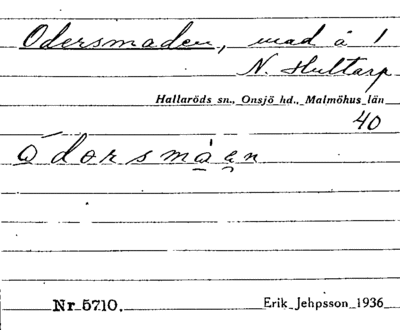 Odersmaden, mad å 1
N. Hultarp
Hallaröds sn., Onsjö hd., Malmöhus län
40
ódorsmąen
Nr 5710. Erik Jehpsson 1936